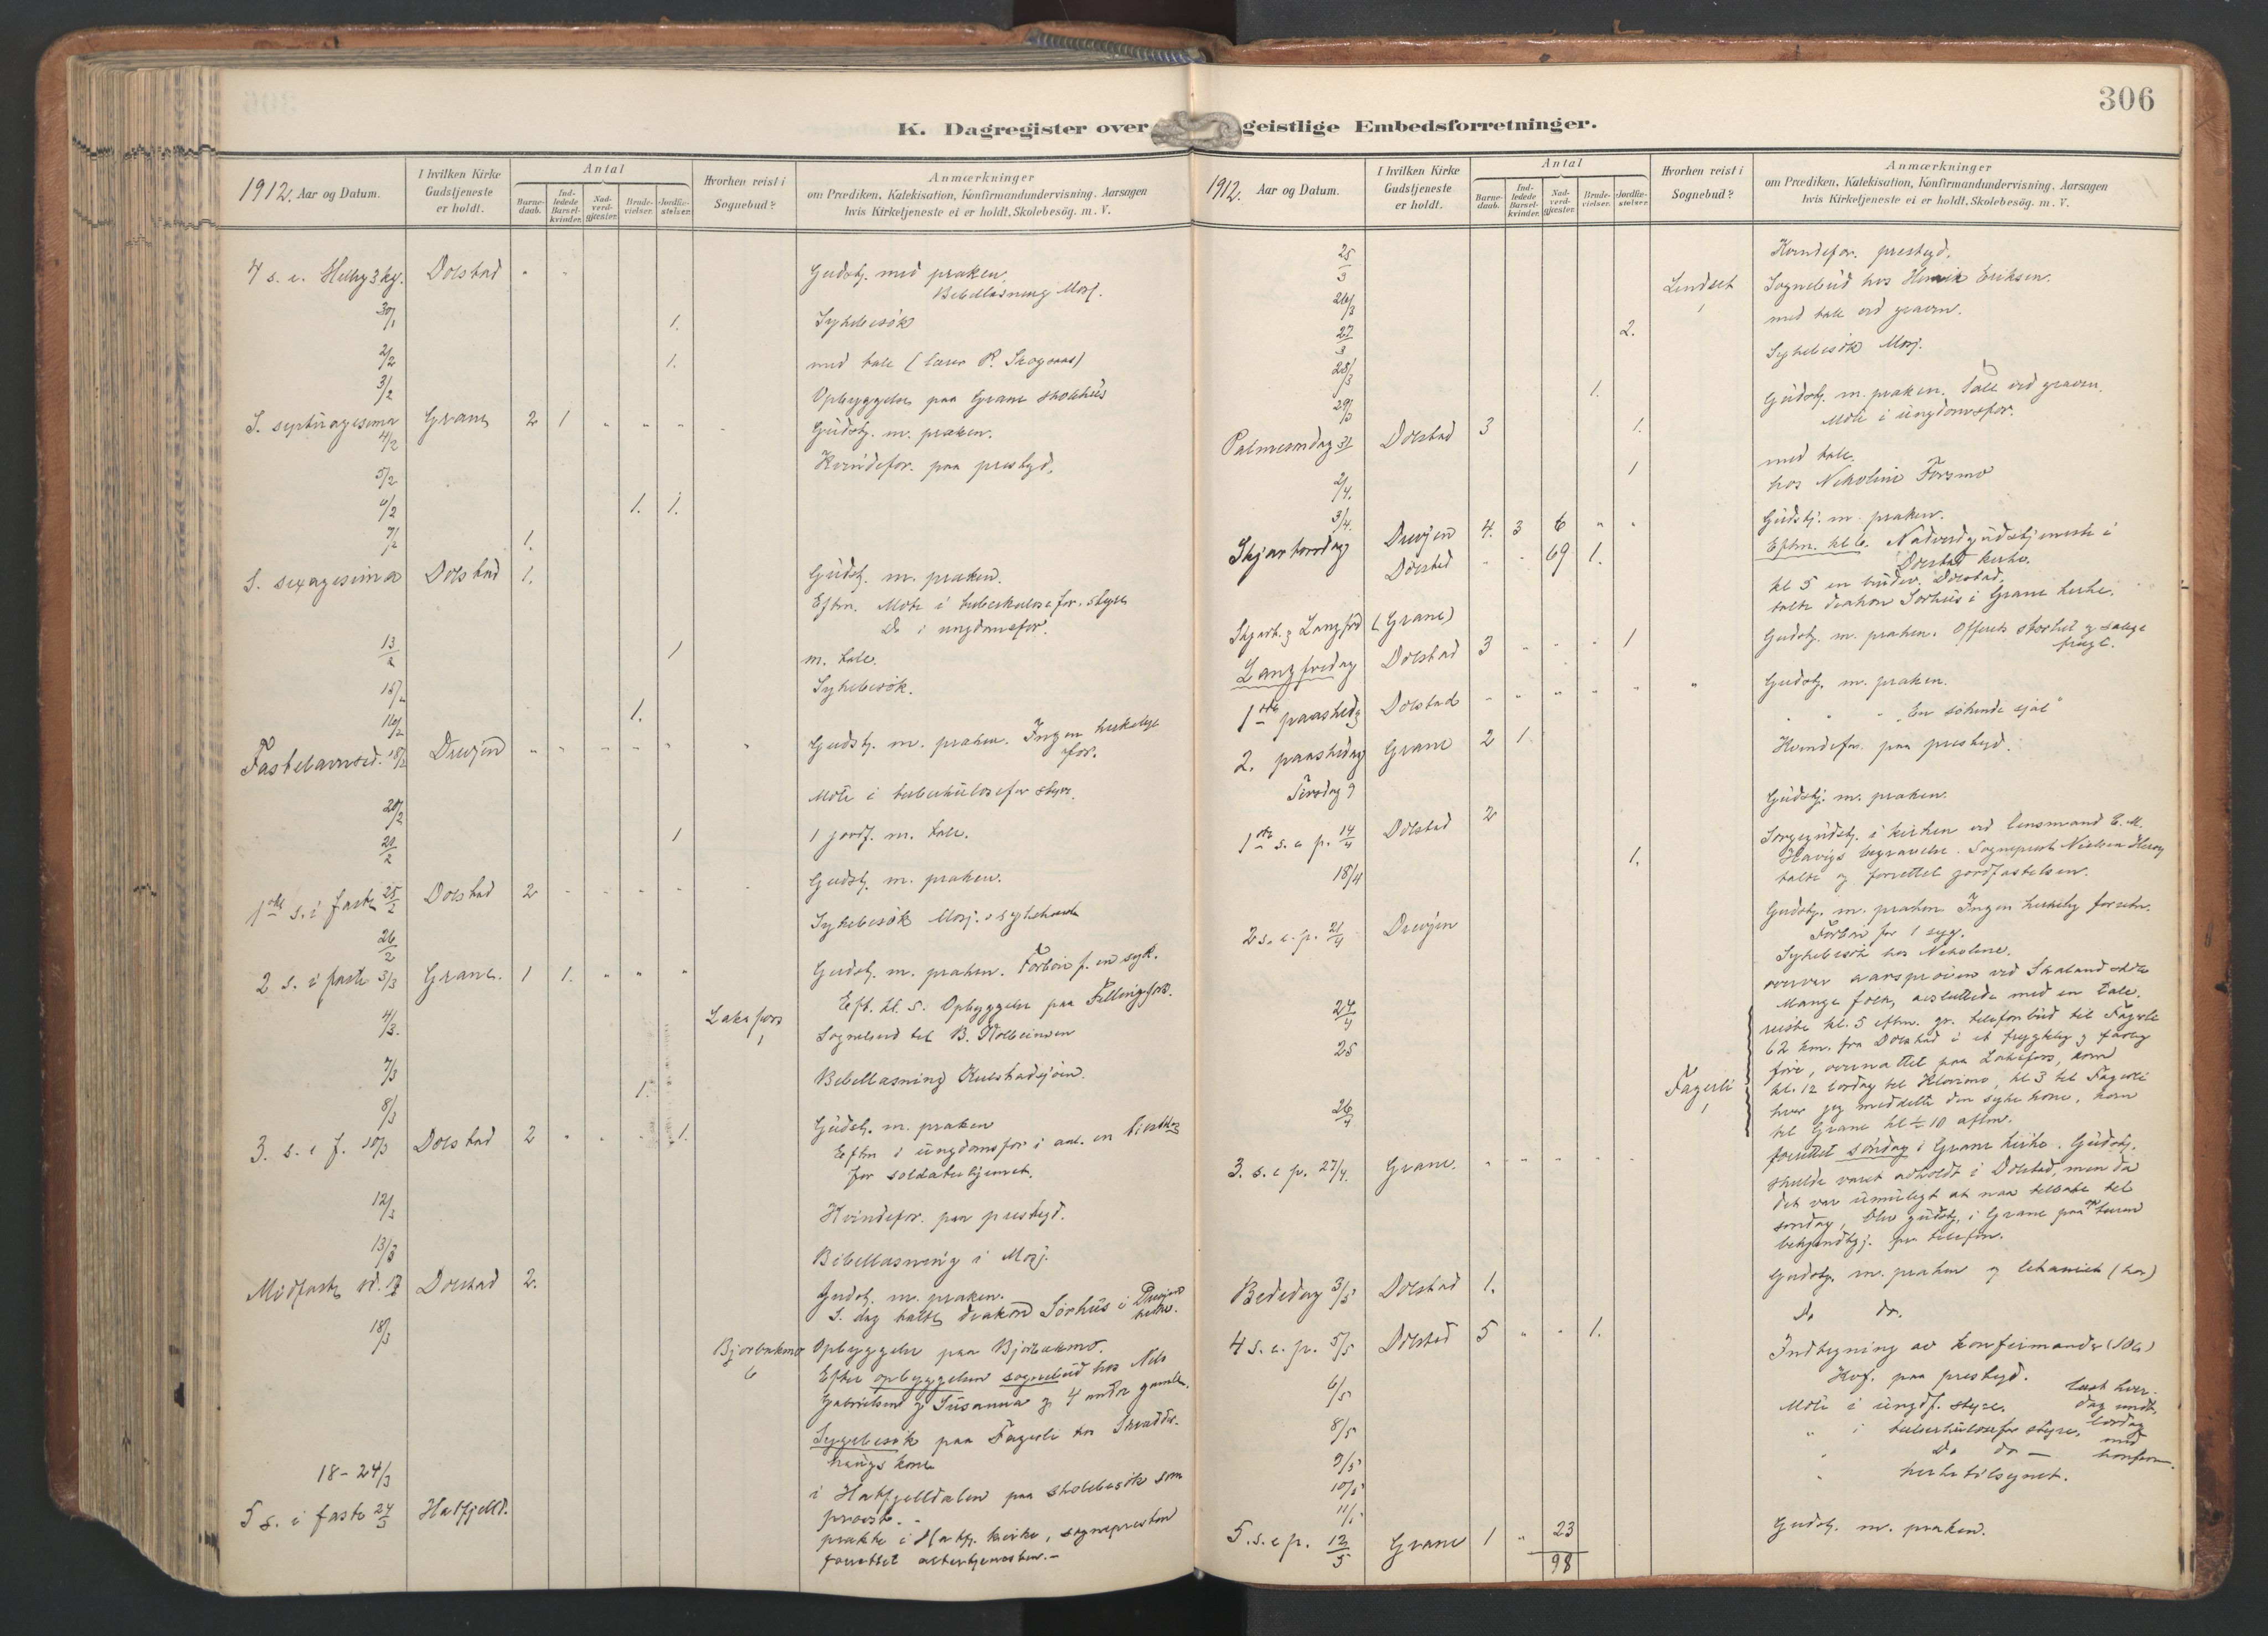 306
K. Dagregister over geistlige Embedsforretninger.
1912. Aar og Datum.
I hvilken Kirke Gudstjeneste er holdt.
Antal
Barne-daab.
Ind-ledede Barsel-kvinder.
Nad-verd-gjæster.
Brude-vielser.
Jordfæ-stelser.
Hvorhen reist i Sognebud?
Anmærkninger
om Prædiken, Katekisation, Konfirmandundervisning. Aarsagen
hvis Kirketjeneste ei er holdt, Skolebesög. m. V.
4 s. e. Hellig 3 kg. Dolstad " " Gudstj. med præken.
Bibellæsning Mosj.
30/1 1. Sykebesök
2/2 1. med tale (lærer P. Skogaas)
3/2 Opbyggelse paa Grane skolehus
S. septuagesima 4/2 Grane 2 1 " " " " Gudstj. m. præken.
5/2 Kvindefor. paa prestegd.
1. 1.
7/2 1.
S. sexagesima Dolstad 1. Gudstj. m. præken.
Eftm. Möte i tuberkulosefor. styre
Do i ungdomsfor.
13/2 1 m. tale.
15/2 Sykebesök.
16/2 1.
Fastelavnssd. 18/2 Drevjen " " " " " " Gudstj. m. præken. Ingen kirkelige
for.
20/2 Möte i tuberkulosefor styre.
1 1 jordf. m. tale.
1ste s. i faste 25/2 Dolstad 2 " " " " " Gudstj. m. præken.
26/2 Sykebesök Mosj.
2 s. i faste 3/3 Grane. 1 1. " " " Gudstj. m. præken. Forbön f. en syk.
Eft. kl. 5. Opbyggelse paa Fellingfors.
4/3. Laksfors 1 Sognebud til B.
7/3 Bibellæsning Kulstadsjöen.
8/3 1.
3. s. i f. 10/3 Dolstad 2 " " " 1. Gudstj. m. præken
Eftm i ungdomsfor i anl. en
for soldaterhjemet.
12/3 Kvindefor. paa prestegd.
13/3 Bibellæsning i Mosj.
Midfaste sd. 17/3 Dolstad 2. Gudstj. m. præken.
S. dag talte diakon Sörhus i Drevjens
kirke.
18/3 Bjorbækmo 6 Opbyggelse paa Bjorbækmo.
Efter opbyggelsen sognebud hos Nils
Gabrielsen og Susanna og 4 andre gamle.
Sygebesök paa Fagerli hos
kone
18-24/3 i Hatfjelldalen paa skolebesök som
provst. -
5 s. i faste 24/3 Hatfjelld. prækte i Hatfj. kirke, sognepresten
forrettet altertjenesten. -
1912. Aar og Datum.
I hvilken Kirke Gudstjeneste er holdt.
Antal
Barne-daab.
Ind-ledede Barsel-kvinder.
Nad-verd-gjæster.
Brude-vielser.
Jordfæ-stelser.
Hvorhen reist i Sognebud?
Anmærkninger
om Prædiken, Katekisation, Konfirmandundervisning. Aarsagen
hvis Kirketjeneste ei er holdt, Skolebesög. m. V.
25/3 Kvindefor. prestegd.
26/3 Lindset 1 Sognebud hos Henrik Eriksen.
27/3 2. med tale ved graven.
28/3 Sykebesök Mosj.
29/3 1.
Palmesöndag 31/3 Dolstad 3 1. Gudstj. m. præken. Tale ved graven.
Möte i ungdomsfor.
2/4. 1 med tale.
3/4. hos Nikoline Forsmo
Skjærtorsdag Drevjen 4. 3 6 " " Gudstj. m. præken.
Dolstad " " 69 1. Eftm. kl 6. Nadverdgudstjeneste i
Dolstad kirke.
kl 5 en brudev. Dolstad.
Skjært. og Langfrd (Grane) talte diakon Sörhus i Grane kirke.
Langfredag Dolstad 3 " " " 1 Gudstj. m. præken. Offerets storhet og salige
frugt.
1ste paaskedg Dolstad " " " " " " Gudstj. m. præken.
2. paaskedag Grane 2 1 " " " "En sökende sjæl"
Tirsdag 9 Kvindefor. paa prestegd.
1ste s. e p. 14/4 Dolstad 2 Gudstj. m. præken.
18/4 1. Sörgegudstj. i kirken ved lensmand E. M.
Havigs begravelse. Sogneprest Nielsen Heröy
talte og forrettet jordfæstelsen.
2 s. e. p. 21/4 Drevjen Gudstj. m. præken Ingen kirkelig forretn.
Forbön for 1 syg.
Sykebesök hos Nikoline.
24/4 overvar aarspröven ved skole
Mange folk, avsluttede med en tale.
25 reiste kl. 5 eftm. gr. telefonbud til Fagerli
62 km. fra Dolstad i et tryggelig og farlig
före, overnattet paa Laksfors, kom
Fagerli 1 kl. 12 lördag til Klovimo, kl 3 til Fagerli
26/4 hvor jeg meddelte den syke kone, kom
til Grane kl ½ 10 aften.
3. s. e p. 27/4. Grane. " " " " " forrettet söndag i Grane kirke. Gudstj.
skulde været avholdt i Dolstad, men da
det var umuligt at naa tilbake til
söndag, blev gudstj. i Grane paa
bekjendtgj. pr telefon.
Bededag 3/5 Dolstad 1. Gudstj. m. præken og litaniet (kor)
4 s. e. p. 5/5 Dolstad 5 " " 1. Do do.
6/5 Indtegning av konfirmander (106)
Kvf. paa prestegd.
8/5 Möte i ungdf. styre.
læst hver-
dag undt.
lördag
med
konfirm.
9/5 " i tuberkulosefor styre,
10/5 " Do do -
11/5 " kirketilsynet.
5. s. e p. 12/5 Grane 1 " 23 Gudstj. m. præken.
98